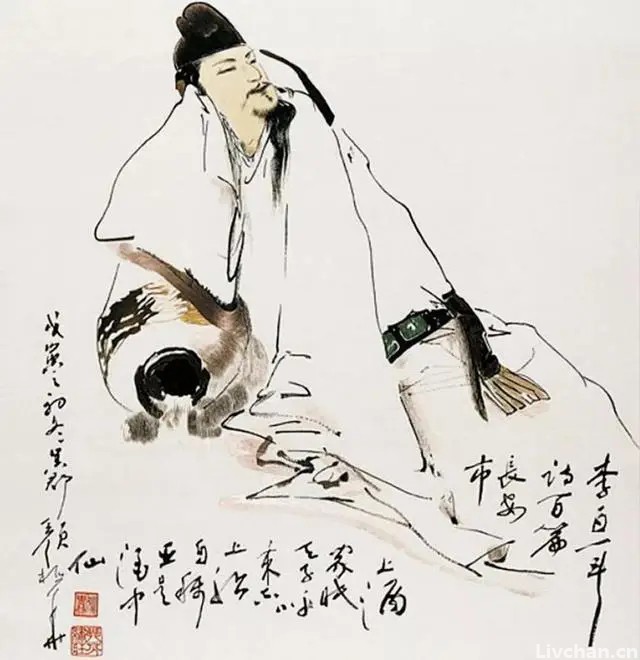 李白一斗
詩百篇
長安
市
上酒
家眠
天子呼
来不
上船
自稱
臣是
酒中
仙
戊寅之初冬吳郡顏梅華
Livchan.cn